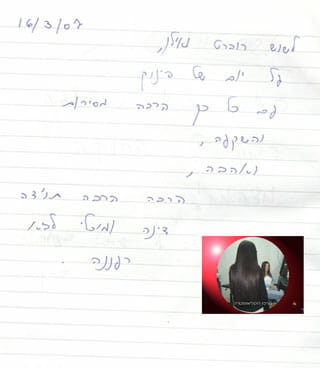 16/3/07
לשוש רוברט ואילן,
על יום של פינוק
עם כל כך הרבה מסירות
והשקעה,
ואהבה,
הרבה הרבה תודה
דינה ומיטל לביא
רעננה.